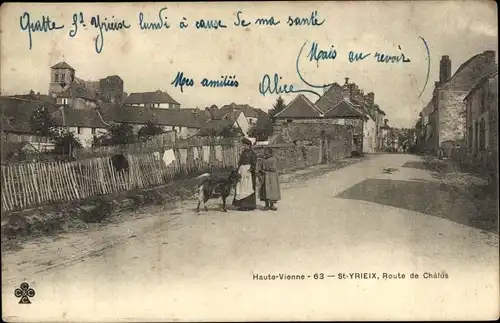 Quitte St Yrieix lundi à cause de ma santé
Mais au revoir
Mes amitiés
Alice
Haute-Vienne - 63 — St-YRIEIX, Route de Châlus
C&C